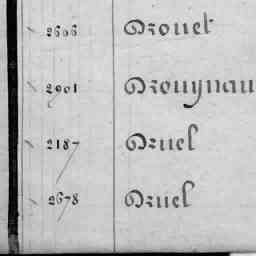 2606 Drouet
2901 Drouynau
2187 Druel
2678 Druel